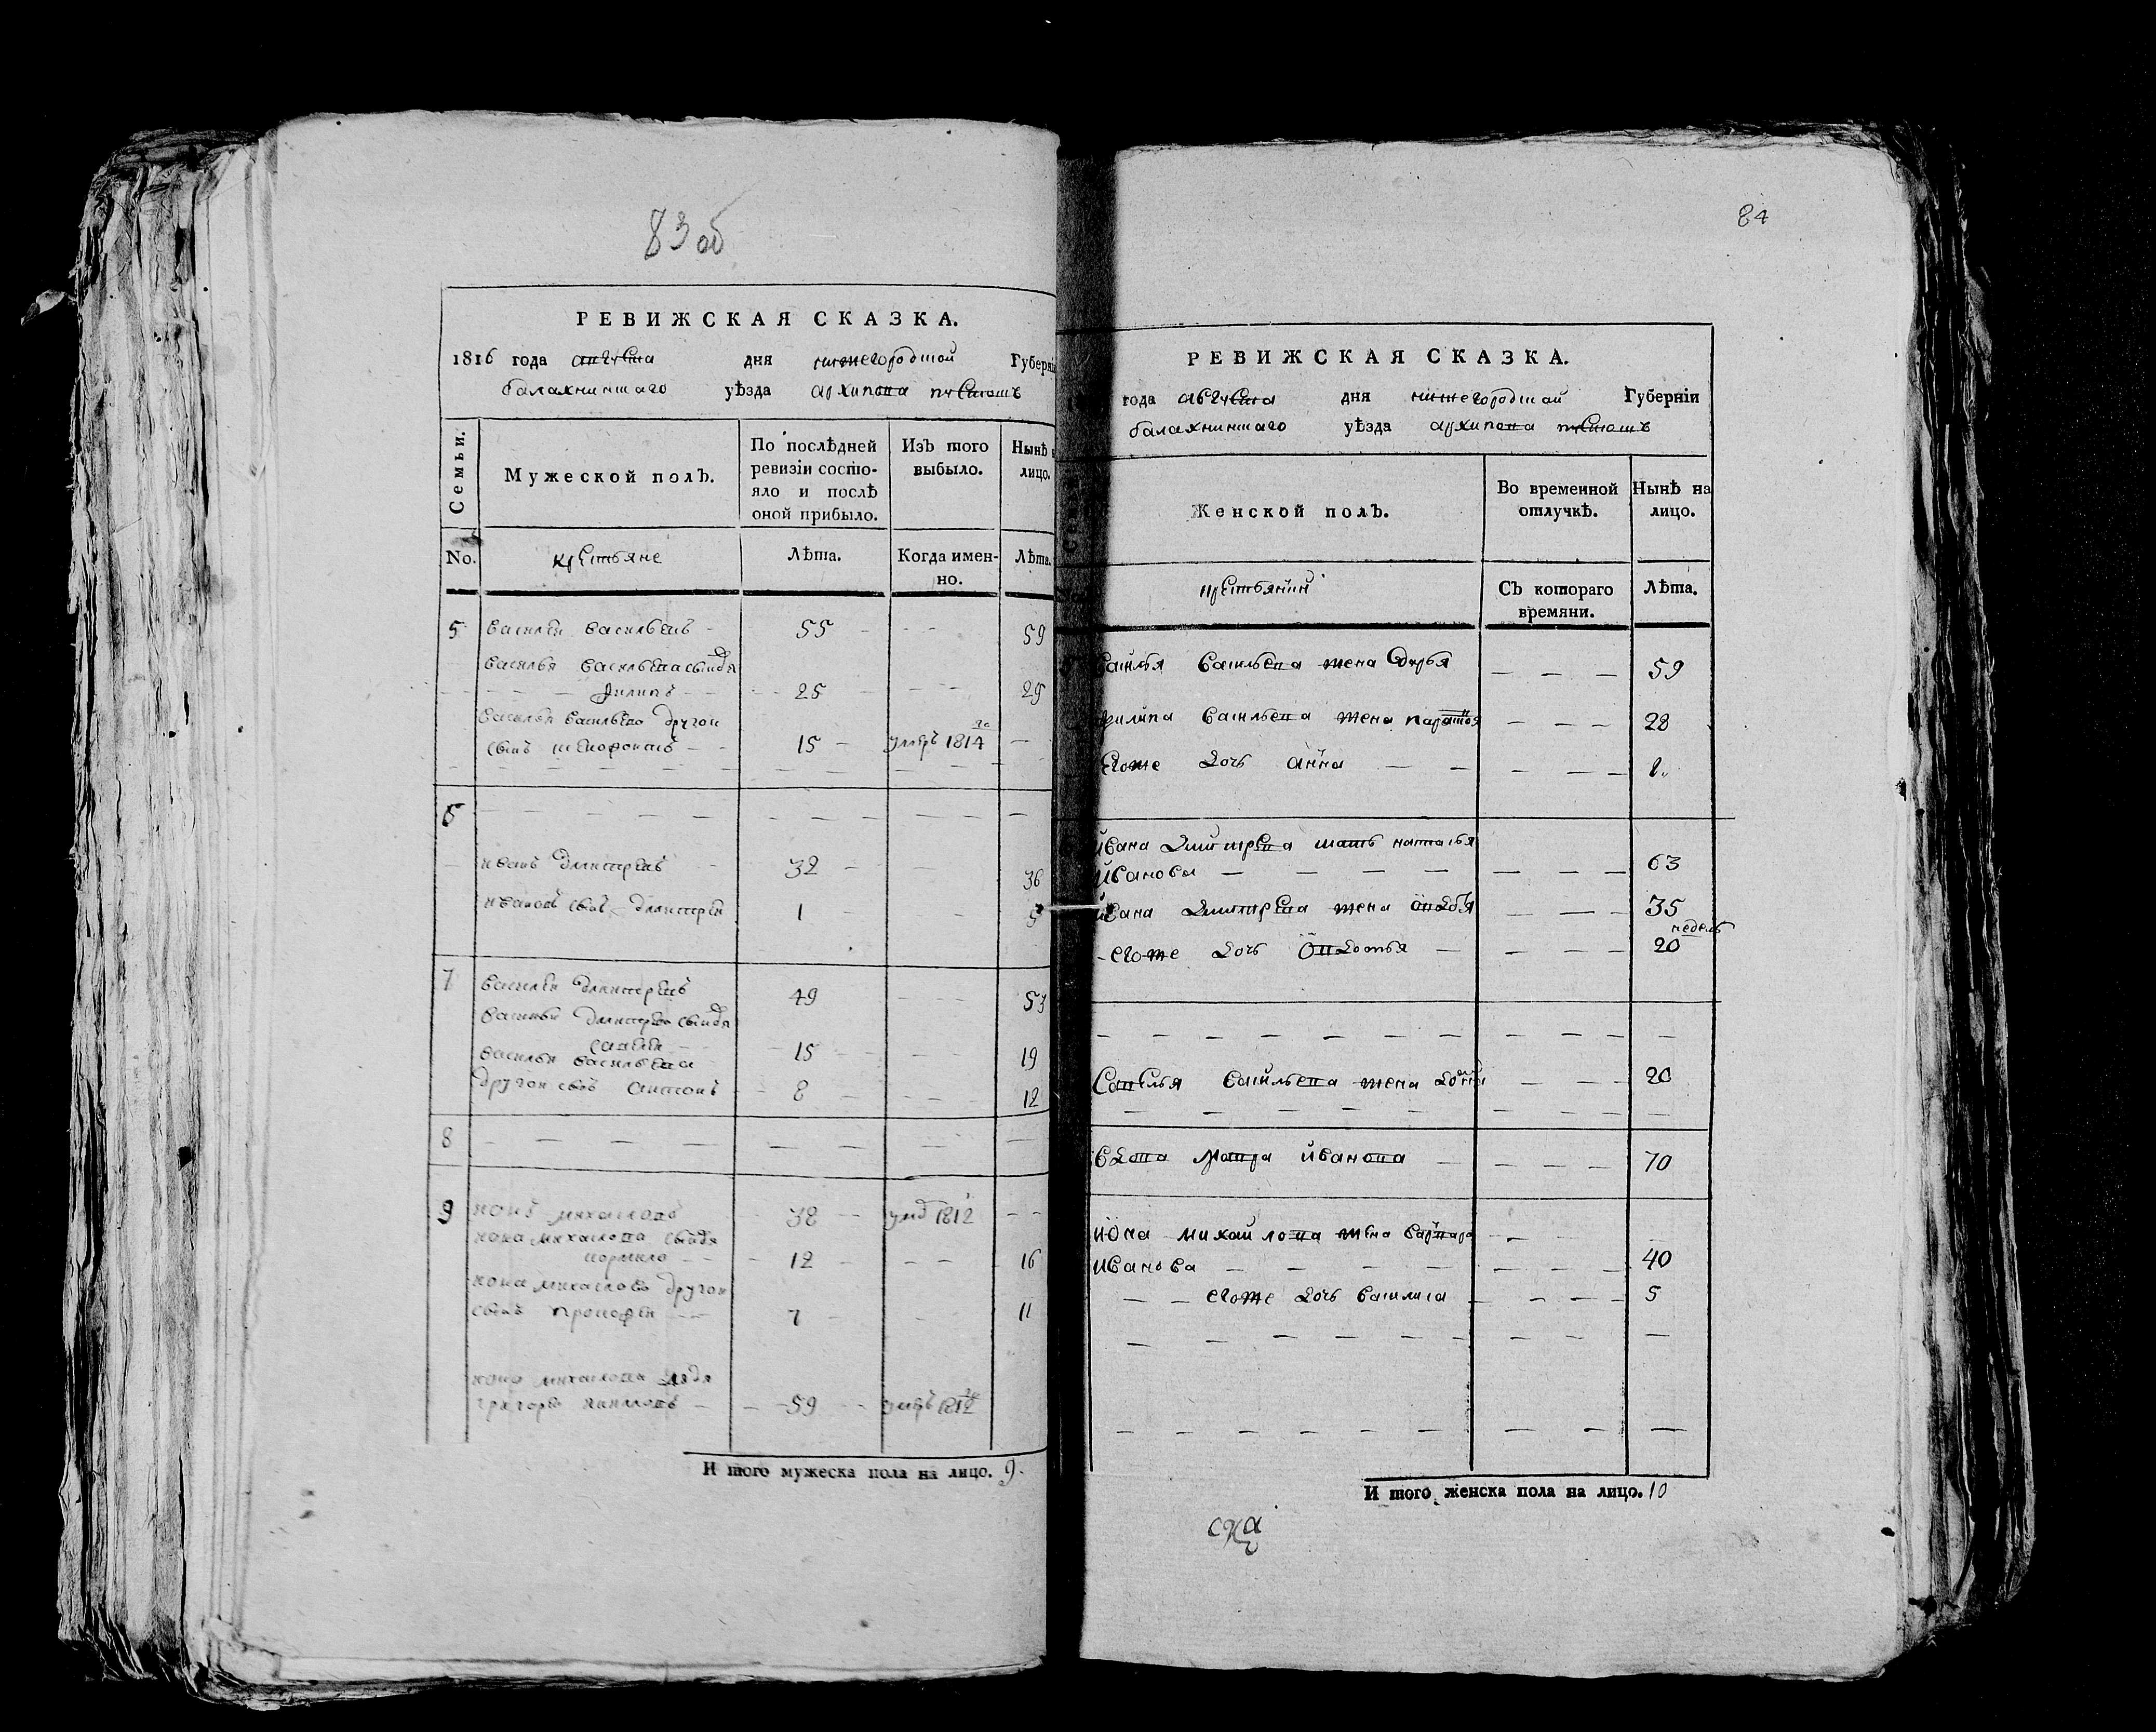 83 об
РЕВИЖСКАЯ СКАЗКА.
1816 года августа дня нижегородской Губерні
балахнинского уѣзда архипова
Семьи.
Мужеской полъ.
По послѣдней ревизіи состояло и послѣ оной прибыло.
Изъ того выбыло.
Нынѣ на лицо.
No.
крестьяне
Лѣта.
Когда именно.
Лѣта.
5 василей васильевъ 55 - - 59
василья васильева сындя
филипъ 25 - - 29
василья васильева другои
сынъ ксенофонтъ 15 умеръ 1814 го —
6
иванъ дмитревъ 32 — 36
ивановъ сынъ дмитрей 1 - 5
7 василей дмитревъ 49 - - - 53
василья дмитрева сындя
савелей 15 - - 19
василья васильева
другои сынъ антонъ 8 - - - 12
8 - — — — — — — —
9 иона михаиловъ 38 умд 1812 - -
иона михаилова сындя
кормило 12 - - - 16
иона михаилова другои
сынъ прокофеи 7 - - 11
иона михаилова дядя
григореи 59 умеръ 1812 го
И того мужеска пола на лицо. 9.
84
РЕВИЖСКАЯ СКАЗКА.
года августа дня нижегородской Губерніи
балахнинского уѣзда архипова
Женской полъ.
Во временной отлучкѣ.
Нынѣ на лицо.
Съ котораго времяни.
Лѣта.
василья васильева жена дарья — — — 59
филипа васильева жена парасковя — — — 28
егоже дочь анна — — — — — 1
ивана дмитрева мать наталья
иванова — — — — — — — 63
ивана дмитрева жена авдотья — — — 35
недель
егоже дочь овдотья — — — — 20
савелья васильева жена домна — — — 20
вдова иванова — — — — 70
иона михайлова жена варвара
иванова — — — — — — — 40
— — егоже дочь василиса — — — 5
И того женска пола на лицо. 10
ска